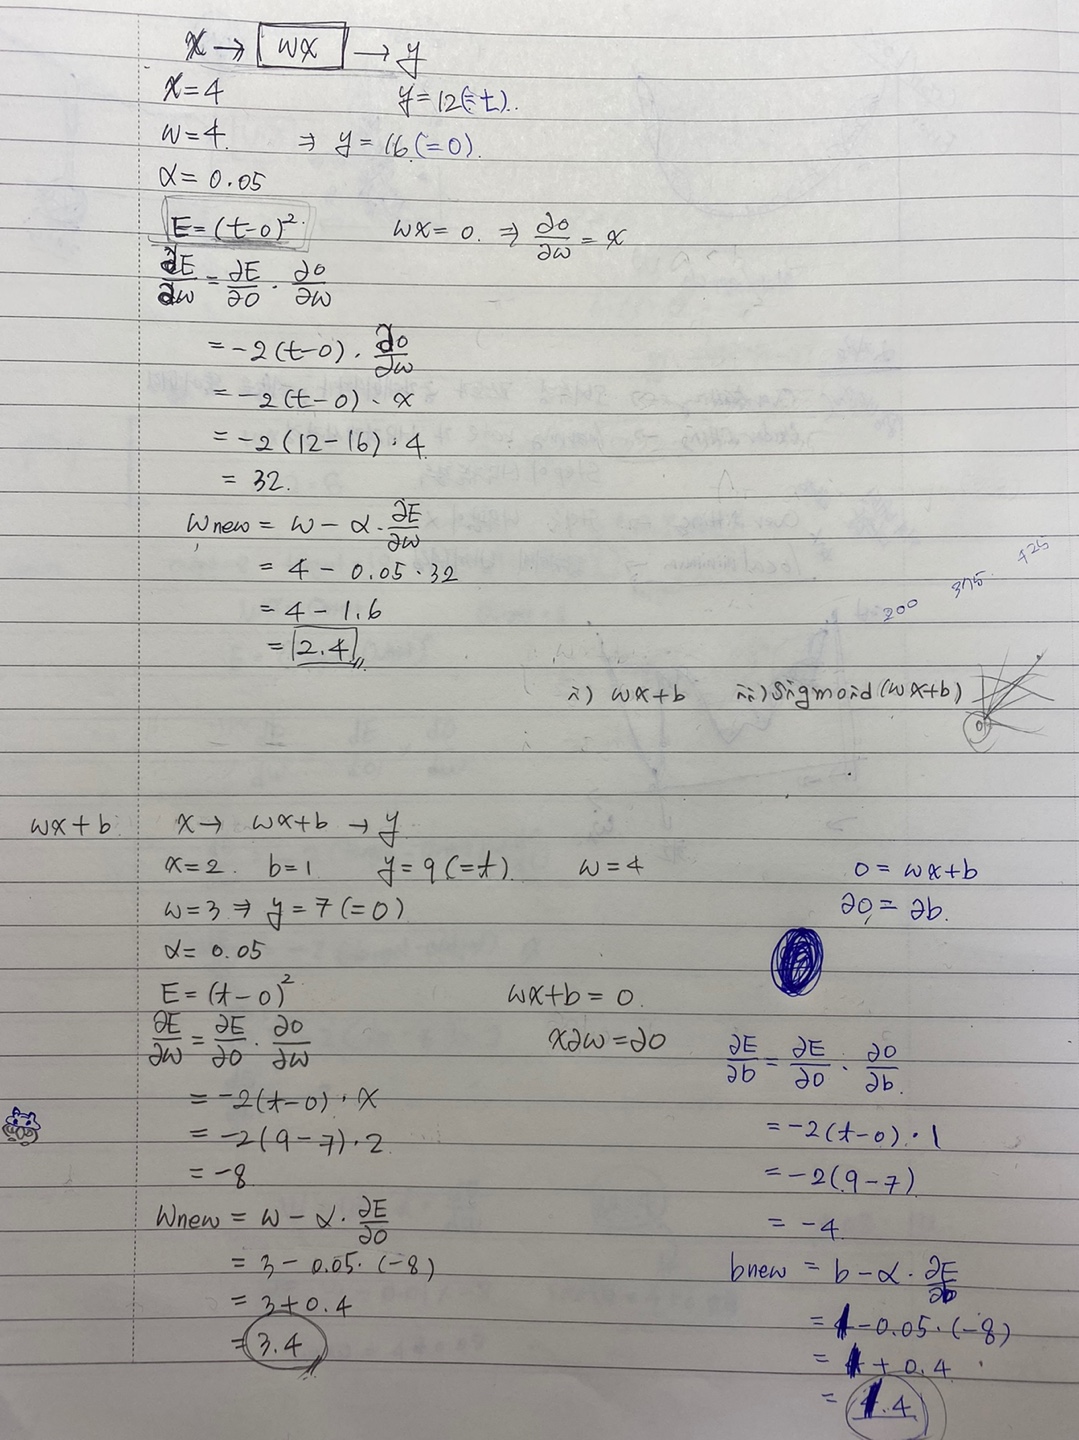 x → wx → y
x=4 y=12(=t).
w=4. ⇒ y=16(=o).
α=0.05
E=(t-o)². wx=o. ⇒ ∂o/∂w = x
∂E/∂w = ∂E/∂o · ∂o/∂w
= -2(t-o) · ∂o/∂w
= -2(t-o) · x
= -2(12-16)·4
= 32.
Wnew = w - α · ∂E/∂w
= 4 - 0.05·32
= 4 - 1.6
= 2.4
200 375. 425
i) wx+b ii) Sigmoid(wx+b)
0
wx+b. x → wx+b → y
x=2. b=1. y=9(=t) w=4
w=3 ⇒ y=7(=o)
α=0.05
E=(t-o)² wx+b=o.
∂E/∂w = ∂E/∂o · ∂o/∂w x∂w=∂o
= -2(t-o)·x
= -2(9-7)·2
= -8
Wnew = w - α · ∂E/∂o
= 3 - 0.05·(-8)
= 3+0.4
= 3.4
o = wx+b
∂o = ∂b.
∂E/∂b = ∂E/∂o · ∂o/∂b.
= -2(t-o)·1
= -2(9-7)
= -4
bnew = b - α · ∂E/∂b
= 1 - 0.05·(-8)
= 1 + 0.4
= 1.4